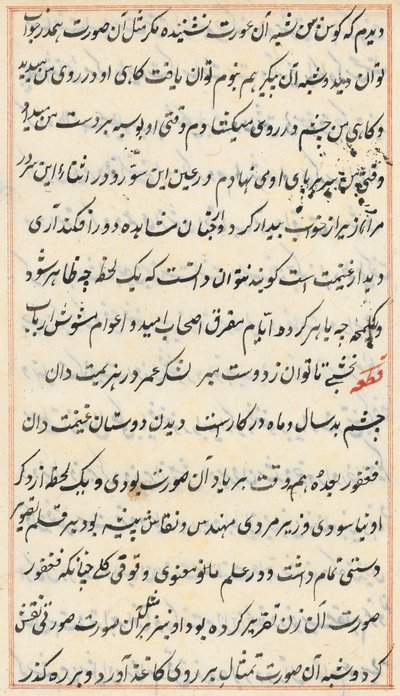 دیدم که گوش من شبیه آن عورت نشنیده مگر مثل آن صورت همدر خواب
توان دید و شبه آن پیکر هم بنوم توان یافت گاهی او در روی من میدید
و گاهی من چشم در روی او میکشادم وقتی او بوسه بر دست من میداد
وقتی من سر بر پای او می نهادم در عین این سور و در اثناء این سرور
مرا از خواب بیدار کرد و از چنان مشاهده دور افکند آری
دیدار غنیمت است که بنتوان دانست که یک لحظه چه ظاهر شود
و یک لمحه چه باهر گردد ایام مفرق اصحاب امید و اعوام مشوش ارباب
قطعه نخشبی تا توان ز دوست مبر لشکر عمر در هزیمت دان
چشم بد سال و ماه در کار است دیدن دوستان غنیمت دان
فغفور بعده هم وقت بر یاد آن صورت بودی و یک لحظه از ذکر
او نیاسودی وزیر مردی مهندس و نقاش پیشه بود بر قلم تصویر
دستی تمام داشت و در علم مانوی وقوفی کلی چنانکه فغفور
صورت آن زن تقریر کرده بود او بر مثل آن صورت صورتی نقش
کرد و شبه آن صورت تمثال بر روی کاغذ آورد و بر ره گذر